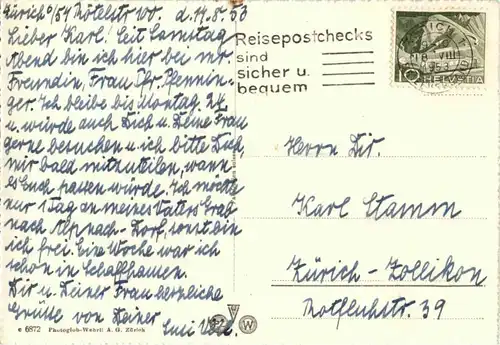 Zürich 6/57 Rötelstr 100. d. 17.8.53
Lieber Karl! Seit Samstag
Abend bin ich hier bei mr.
Freundin, Frau Pfr. Pfennin-
ger. Ich bleibe bis Montag 24.
u. würde auch Dich u. Deine Frau
gerne besuchen u. ich bitte Dich,
mir bald mitzuteilen, wann
es Euch passen würde. Ich möchte
nur 1 Tag an meines Vaters Grab
nach Alpnach-Dorf, sonst bin
ich frei. Eine Woche war ich
schon in Schaffhausen.
Dir u. Deiner Frau herzliche
Grüsse von Deiner
Emi
c 6872 Photoglob-Wehrli A. G. Zürich
Reisepostchecks
sind
sicher u.
bequem
10 HELVETIA
VIII
Herrn Dir.
Karl Stamm
Zürich-Zollikon
Rotfluhstr. 39